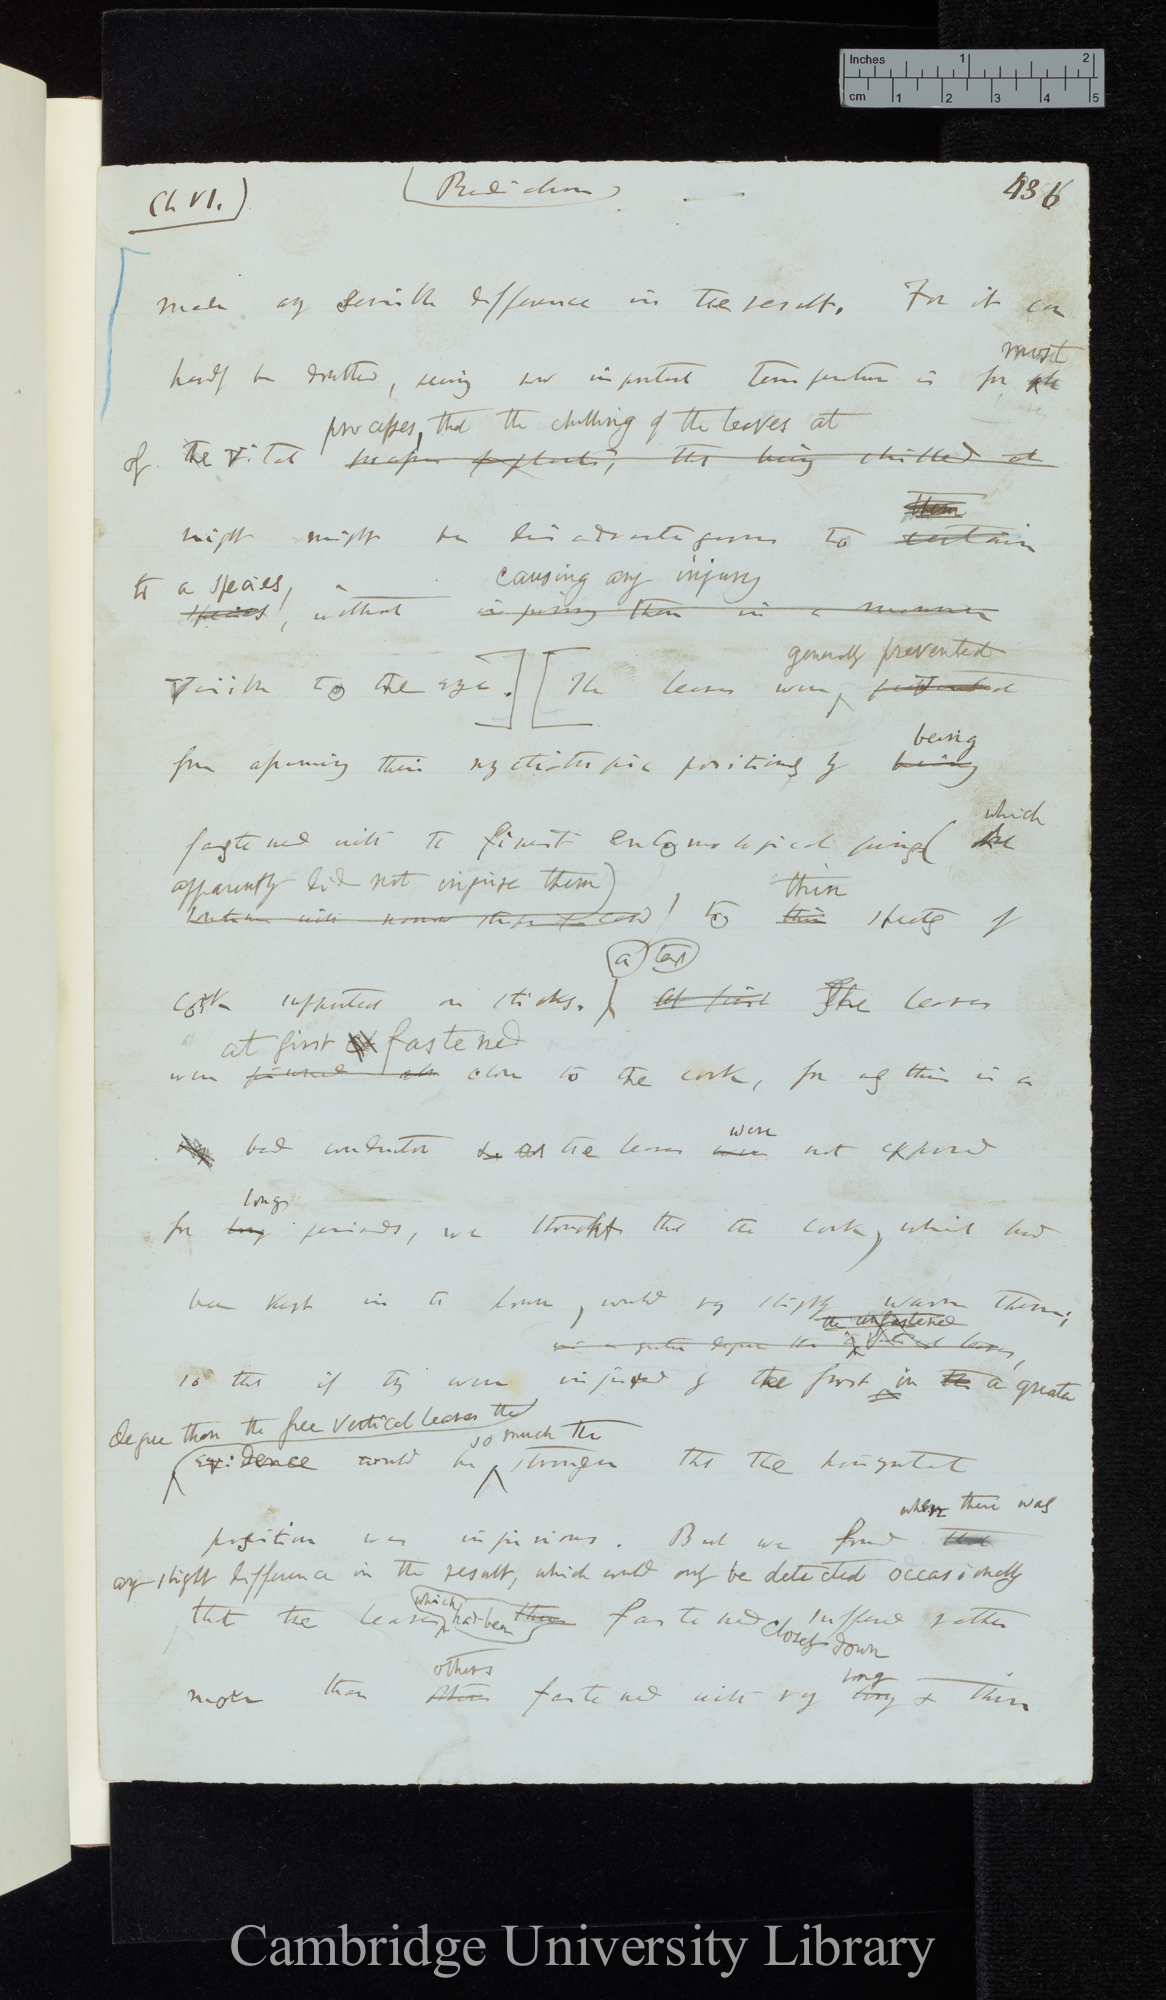 Inches 1 2
cm 1 2 3 4 5
Ch VI.) (Radiation) 436
made any sensible difference in the result. For it can
most
hardly be doubted, seeing how important temperature is for
processes, that the chilling of the leaves at
of the vital that being chilled at
them
night might be disadvantageous to certain
to a species, causing any injury
species, without injuring them in a manner
generally prevented
visible to the eye.] [The leaves were prevented
being
from assuming their nyctitropic positions by being
which
fastened with the finest entomological pins (
apparently did not injure them) thin
to thin sheets of
a text
cork supported on sticks. At first The leaves
at first fastened
were pinned close to the cork, for as this is a
were
bad conductor & as the leaves were not exposed
long
for long periods, we thought that the cork, which had
been kept in the house, would very slightly warm them;
the unfastened
in a greater degree than the vertical leaves,
so that if they were injured by the frost in the a greater
degree than the free vertical leaves the
so much the
evidence would be stronger that the horizontal
when there was
position was injurious. But we found that
any slight difference in the result, which could only be detected occasionally
which had been
that the leaves fastened suffered rather
closely down
others long
more than others fastened with very long & thin
Cambridge University Library